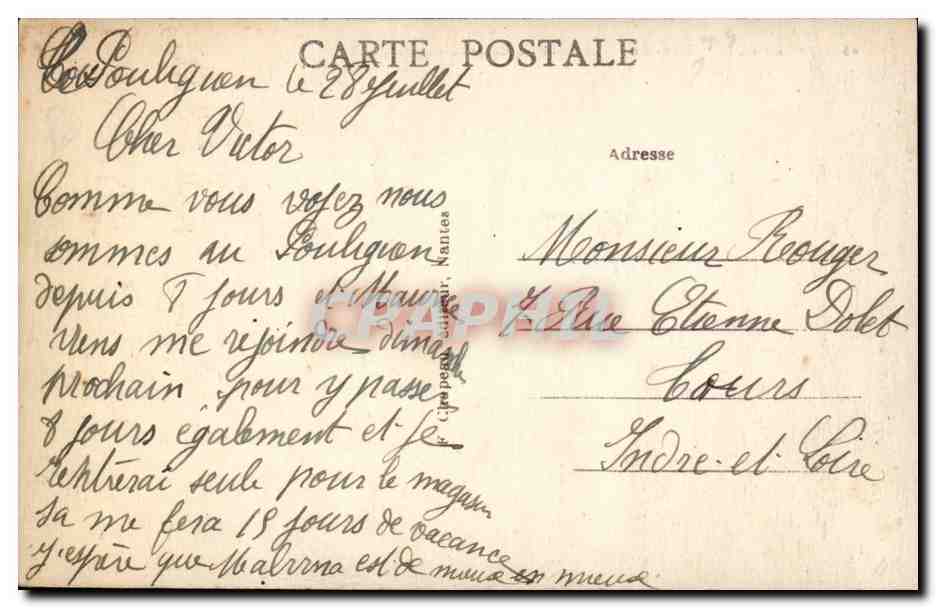 CARTE POSTALE
Le Pouliguen le 28 Juillet
Cher Victor
Comme vous voyez nous
sommes au Pouliguen
depuis 8 jours et Maurice
viens me rejoindre dimanche
prochain pour y passer
8 jours également et je
rentrerai seule pour le magasin
sa me fera 15 jours de vacance
j'espère que est de mieux en mieux
Chapeau éditeur, Nantes
CPAPHIL
Adresse
Monsieur Rouger
7 Rue Etienne Dolet
Tours
Indre-et-Loire